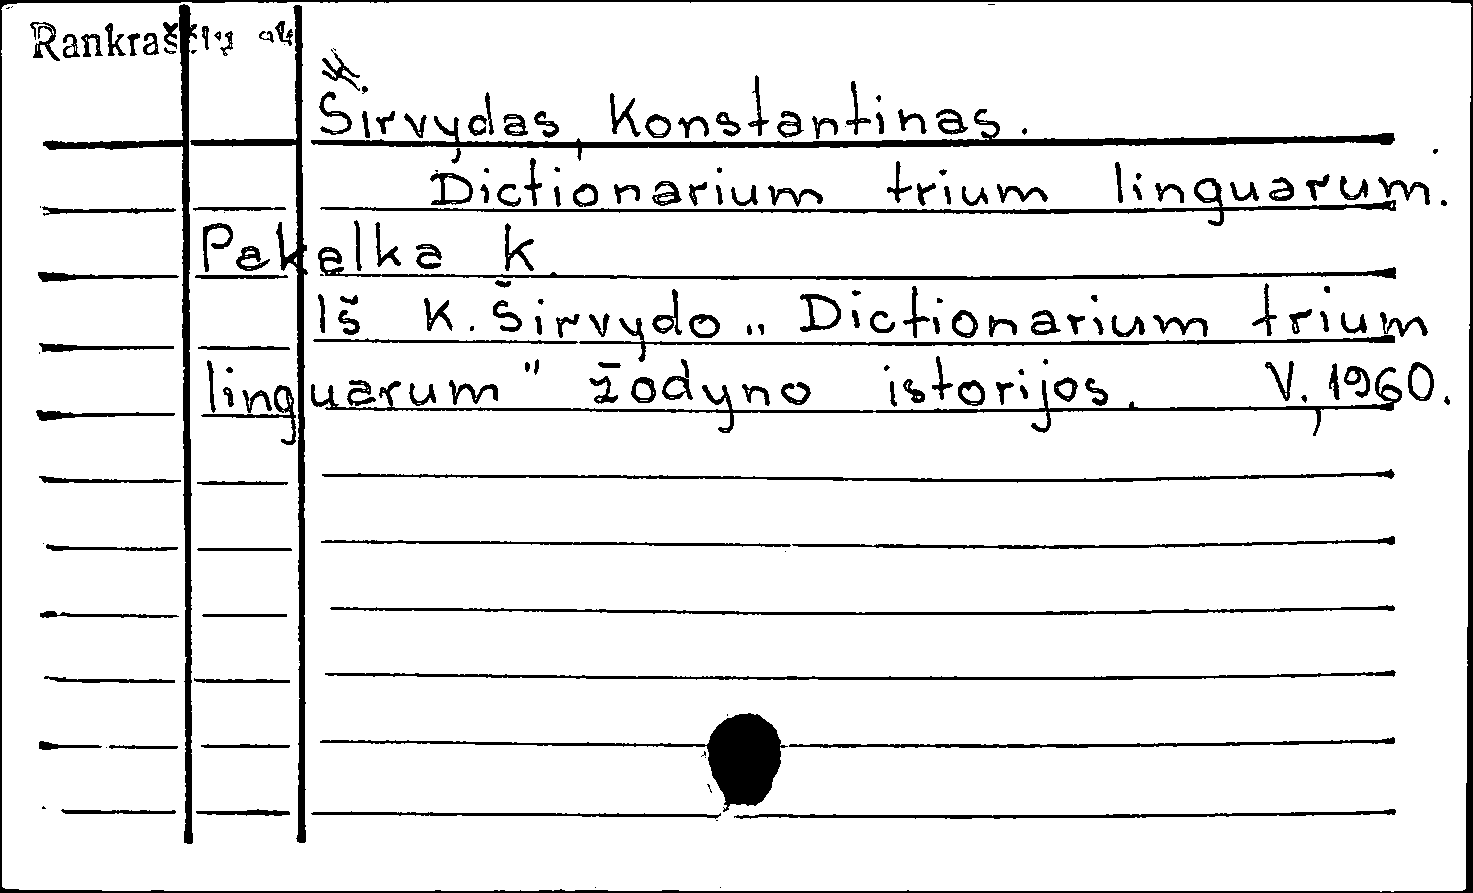 Rankraščių sk
Širvydas, Konstantinas.
Dictionarium trium linguarum.
Pakalka K.
Iš K. Širvydo „Dictionarium trium
linguarum" žodyno istorijos. V., 1960.